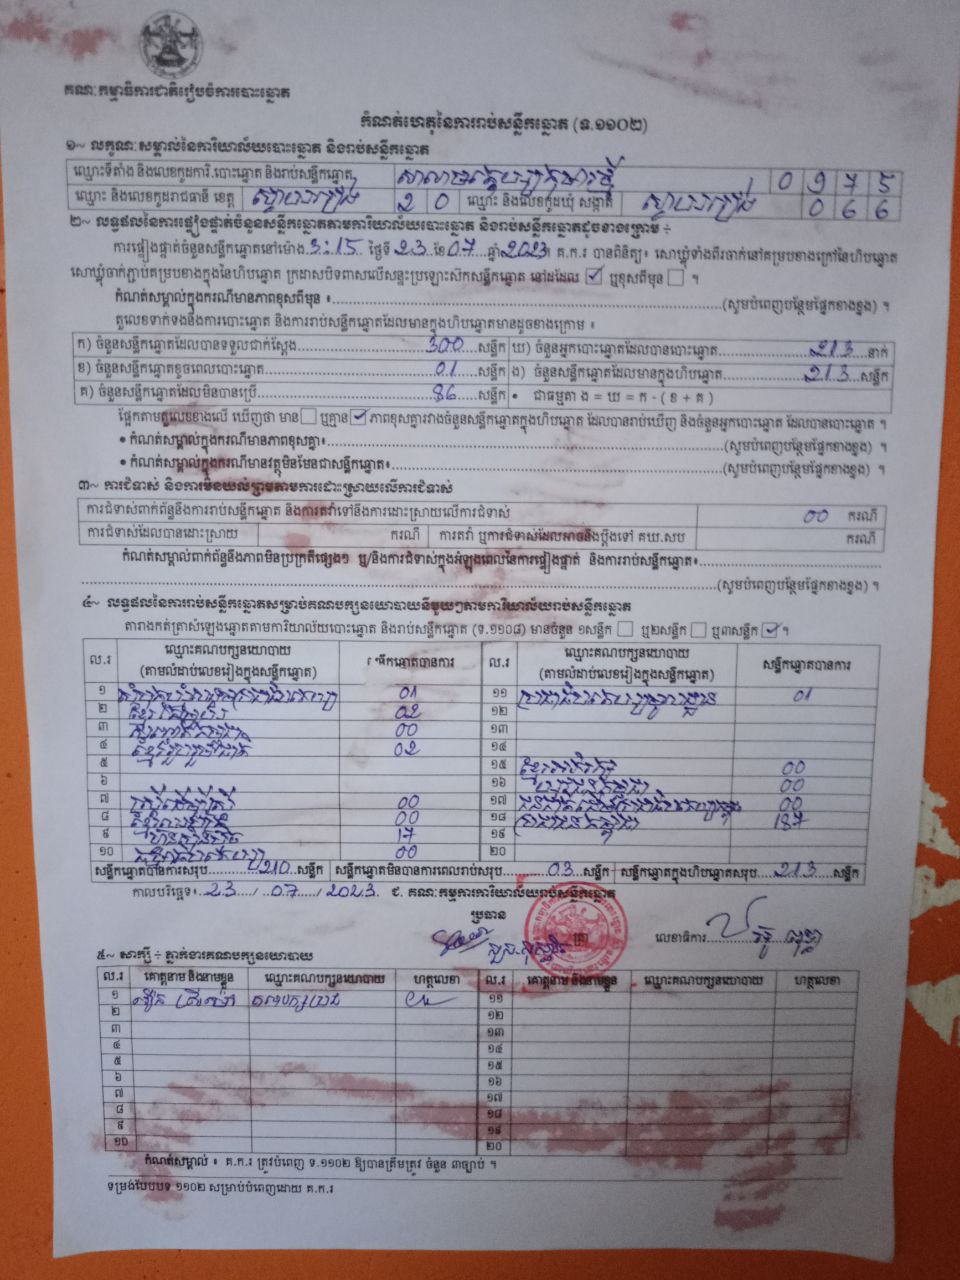 គណៈកម្មាធិការជាតិរៀបចំការបោះឆ្នោត
កំណត់ហេតុនៃការរាប់សន្លឹកឆ្នោត (ទ.១១០២)
១~ លក្ខណៈសម្គាល់នៃការិយាល័យបោះឆ្នោត និងរាប់សន្លឹកឆ្នោត
ឈ្មោះទីតាំង និងលេខកូដការិ.បោះឆ្នោត និងរាប់សន្លឹកឆ្នោត 0 9 7 5
ឈ្មោះ និងលេខកូដរាជធានី ខេត្ត 2 0 ឈ្មោះ និងលេខកូដឃុំ សង្កាត់ 0 6 6
២~ លទ្ធផលនៃការផ្ទៀងផ្ទាត់ចំនួនសន្លឹកឆ្នោតតាមការិយាល័យបោះឆ្នោត និងរាប់សន្លឹកឆ្នោតដូចខាងក្រោម ÷
ការផ្ទៀងផ្ទាត់ចំនួនសន្លឹកឆ្នោតនៅម៉ោង 3:15 ថ្ងៃទី 23 ខែ 07 ឆ្នាំ 2023 គ.ក.រ បានពិនិត្យ៖ សោឃ្លុំទាំងពីរចាក់នៅគម្របខាងក្រៅនៃហិបឆ្នោត
សោឃ្លុំចាក់ភ្ជាប់គម្របខាងក្នុងនៃហិបឆ្នោត ក្រដាសបិទពាសលើសន្ទះប្រឡោះស៊កសន្លឹកឆ្នោត នៅដដែល ✓ ឬខុសពីមុន ។
កំណត់សម្គាល់ក្នុងករណីមានភាពខុសពីមុន ៖ (សូមបំពេញបន្ថែមផ្នែកខាងខ្នង) ។
តួលេខទាក់ទងនឹងការបោះឆ្នោត និងការរាប់សន្លឹកឆ្នោតដែលមានក្នុងហិបឆ្នោតមានដូចខាងក្រោម ៖
ក) ចំនួនសន្លឹកឆ្នោតដែលបានទទួលជាក់ស្តែង 300 សន្លឹក ឃ) ចំនួនអ្នកបោះឆ្នោតដែលបានបោះឆ្នោត 213 នាក់
ខ) ចំនួនសន្លឹកឆ្នោតខូចពេលបោះឆ្នោត 01 សន្លឹក ង) ចំនួនសន្លឹកឆ្នោតដែលមានក្នុងហិបឆ្នោត 213 សន្លឹក
គ) ចំនួនសន្លឹកឆ្នោតដែលមិនបានប្រើ 86 សន្លឹក • ជាធម្មតា ង = ឃ = ក - ( ខ + គ )
ផ្អែកតាមតួលេខខាងលើ ឃើញថា មាន ឬគ្មាន ✓ ភាពខុសគ្នារវាងចំនួនសន្លឹកឆ្នោតក្នុងហិបឆ្នោត ដែលបានរាប់ឃើញ និងចំនួនអ្នកបោះឆ្នោត ដែលបានបោះឆ្នោត ។
• កំណត់សម្គាល់ក្នុងករណីមានភាពខុសគ្នា៖ (សូមបំពេញបន្ថែមផ្នែកខាងខ្នង) ។
• កំណត់សម្គាល់ក្នុងករណីមានវត្ថុមិនមែនជាសន្លឹកឆ្នោត៖ (សូមបំពេញបន្ថែមផ្នែកខាងខ្នង) ។
៣~ ការជំទាស់ និងការមិនយល់ព្រមតាមការដោះស្រាយលើការជំទាស់
ការជំទាស់ពាក់ព័ន្ធនឹងការរាប់សន្លឹកឆ្នោត និងការតវ៉ាទៅនឹងការដោះស្រាយលើការជំទាស់ 00 ករណី
ការជំទាស់ដែលបានដោះស្រាយ ករណី ការតវ៉ា ឬការជំទាស់ដែលអាចនឹងប្តឹងទៅ គឃ.សប ករណី
កំណត់សម្គាល់ពាក់ព័ន្ធនឹងភាពមិនប្រក្រតីផ្សេងៗ ឬ/និងការជំទាស់ក្នុងអំឡុងពេលនៃការផ្ទៀងផ្ទាត់ និងការរាប់សន្លឹកឆ្នោត៖
(សូមបំពេញបន្ថែមផ្នែកខាងខ្នង) ។
៤~ លទ្ធផលនៃការរាប់សន្លឹកឆ្នោតសម្រាប់គណបក្សនយោបាយនីមួយៗតាមការិយាល័យរាប់សន្លឹកឆ្នោត
តារាងកត់ត្រាសំឡេងឆ្នោតតាមការិយាល័យបោះឆ្នោត និងរាប់សន្លឹកឆ្នោត (ទ.១១០៨) មានចំនួន ១សន្លឹក ឬ២សន្លឹក ឬ៣សន្លឹក ✓ ។
ល.រ ឈ្មោះគណបក្សនយោបាយ (តាមលំដាប់លេខរៀងក្នុងសន្លឹកឆ្នោត) ឹកឆ្នោតបានការ ល.រ ឈ្មោះគណបក្សនយោបាយ (តាមលំដាប់លេខរៀងក្នុងសន្លឹកឆ្នោត) សន្លឹកឆ្នោតបានការ
១ 01 ១១ 01
២ 02 ១២
៣ 00 ១៣
៤ 02 ១៤
៥ ១៥ 00
៦ ១៦ 00
៧ 00 ១៧ 00
៨ 00 ១៨ 187
៩ 17 ១៩
១០ 00 ២០
សន្លឹកឆ្នោតបានការសរុប 210 សន្លឹក សន្លឹកឆ្នោតមិនបានការពេលរាប់សរុប 03 សន្លឹក សន្លឹកឆ្នោតក្នុងហិបឆ្នោតសរុប 213 សន្លឹក
កាលបរិច្ឆេទ៖ 23 / 07 / 2023 ជ. គណៈកម្មការការិយាល័យរាប់សន្លឹកឆ្នោត
ប្រធាន
លេខាធិការ
៥~ សាក្សី ÷ ភ្នាក់ងារគណបក្សនយោបាយ
ល.រ គោត្តនាម និងនាមខ្លួន ឈ្មោះគណបក្សនយោបាយ ហត្ថលេខា ល.រ គោត្តនាម និងនាមខ្លួន ឈ្មោះគណបក្សនយោបាយ ហត្ថលេខា
១ ១១
២ ១២
៣ ១៣
៤ ១៤
៥ ១៥
៦ ១៦
៧ ១៧
៨ ១៨
៩ ១៩
១០ ២០
កំណត់សម្គាល់ ៖ គ.ក.រ ត្រូវបំពេញ ទ.១១០២ ឱ្យបានត្រឹមត្រូវ ចំនួន ៣ច្បាប់ ។
ទម្រង់បែបបទ ១១០២ សម្រាប់បំពេញដោយ គ.ក.រ